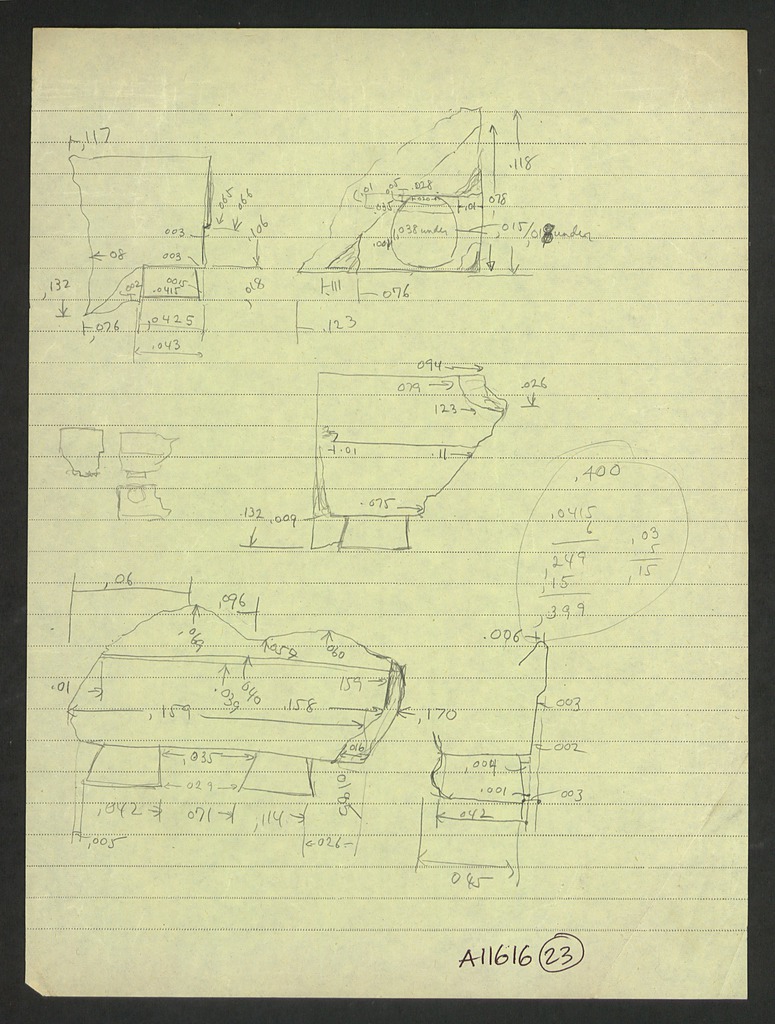 .117
.065
.066
.106
.003
.003
.08
.002
.0015
.0415
.018
.132
.076
.0425
.043
.118
.078
.01
.05
.028
.035
.01
.038 under
.015/.018 under
.001
.111
.076
.123
.094
.079
.026
.123
.01
.11
.075
.132
.009
.400
.0415
6
.249
.15
.399
.03
5
.15
.06
.096
.069
.059
.060
.01
.039
.040
.159
.158
.159
.170
.016
.035
.029
.0185
.042
.071
.114
.005
.026
.006
.003
.002
.004
.001
.003
.042
.045
A11616 23